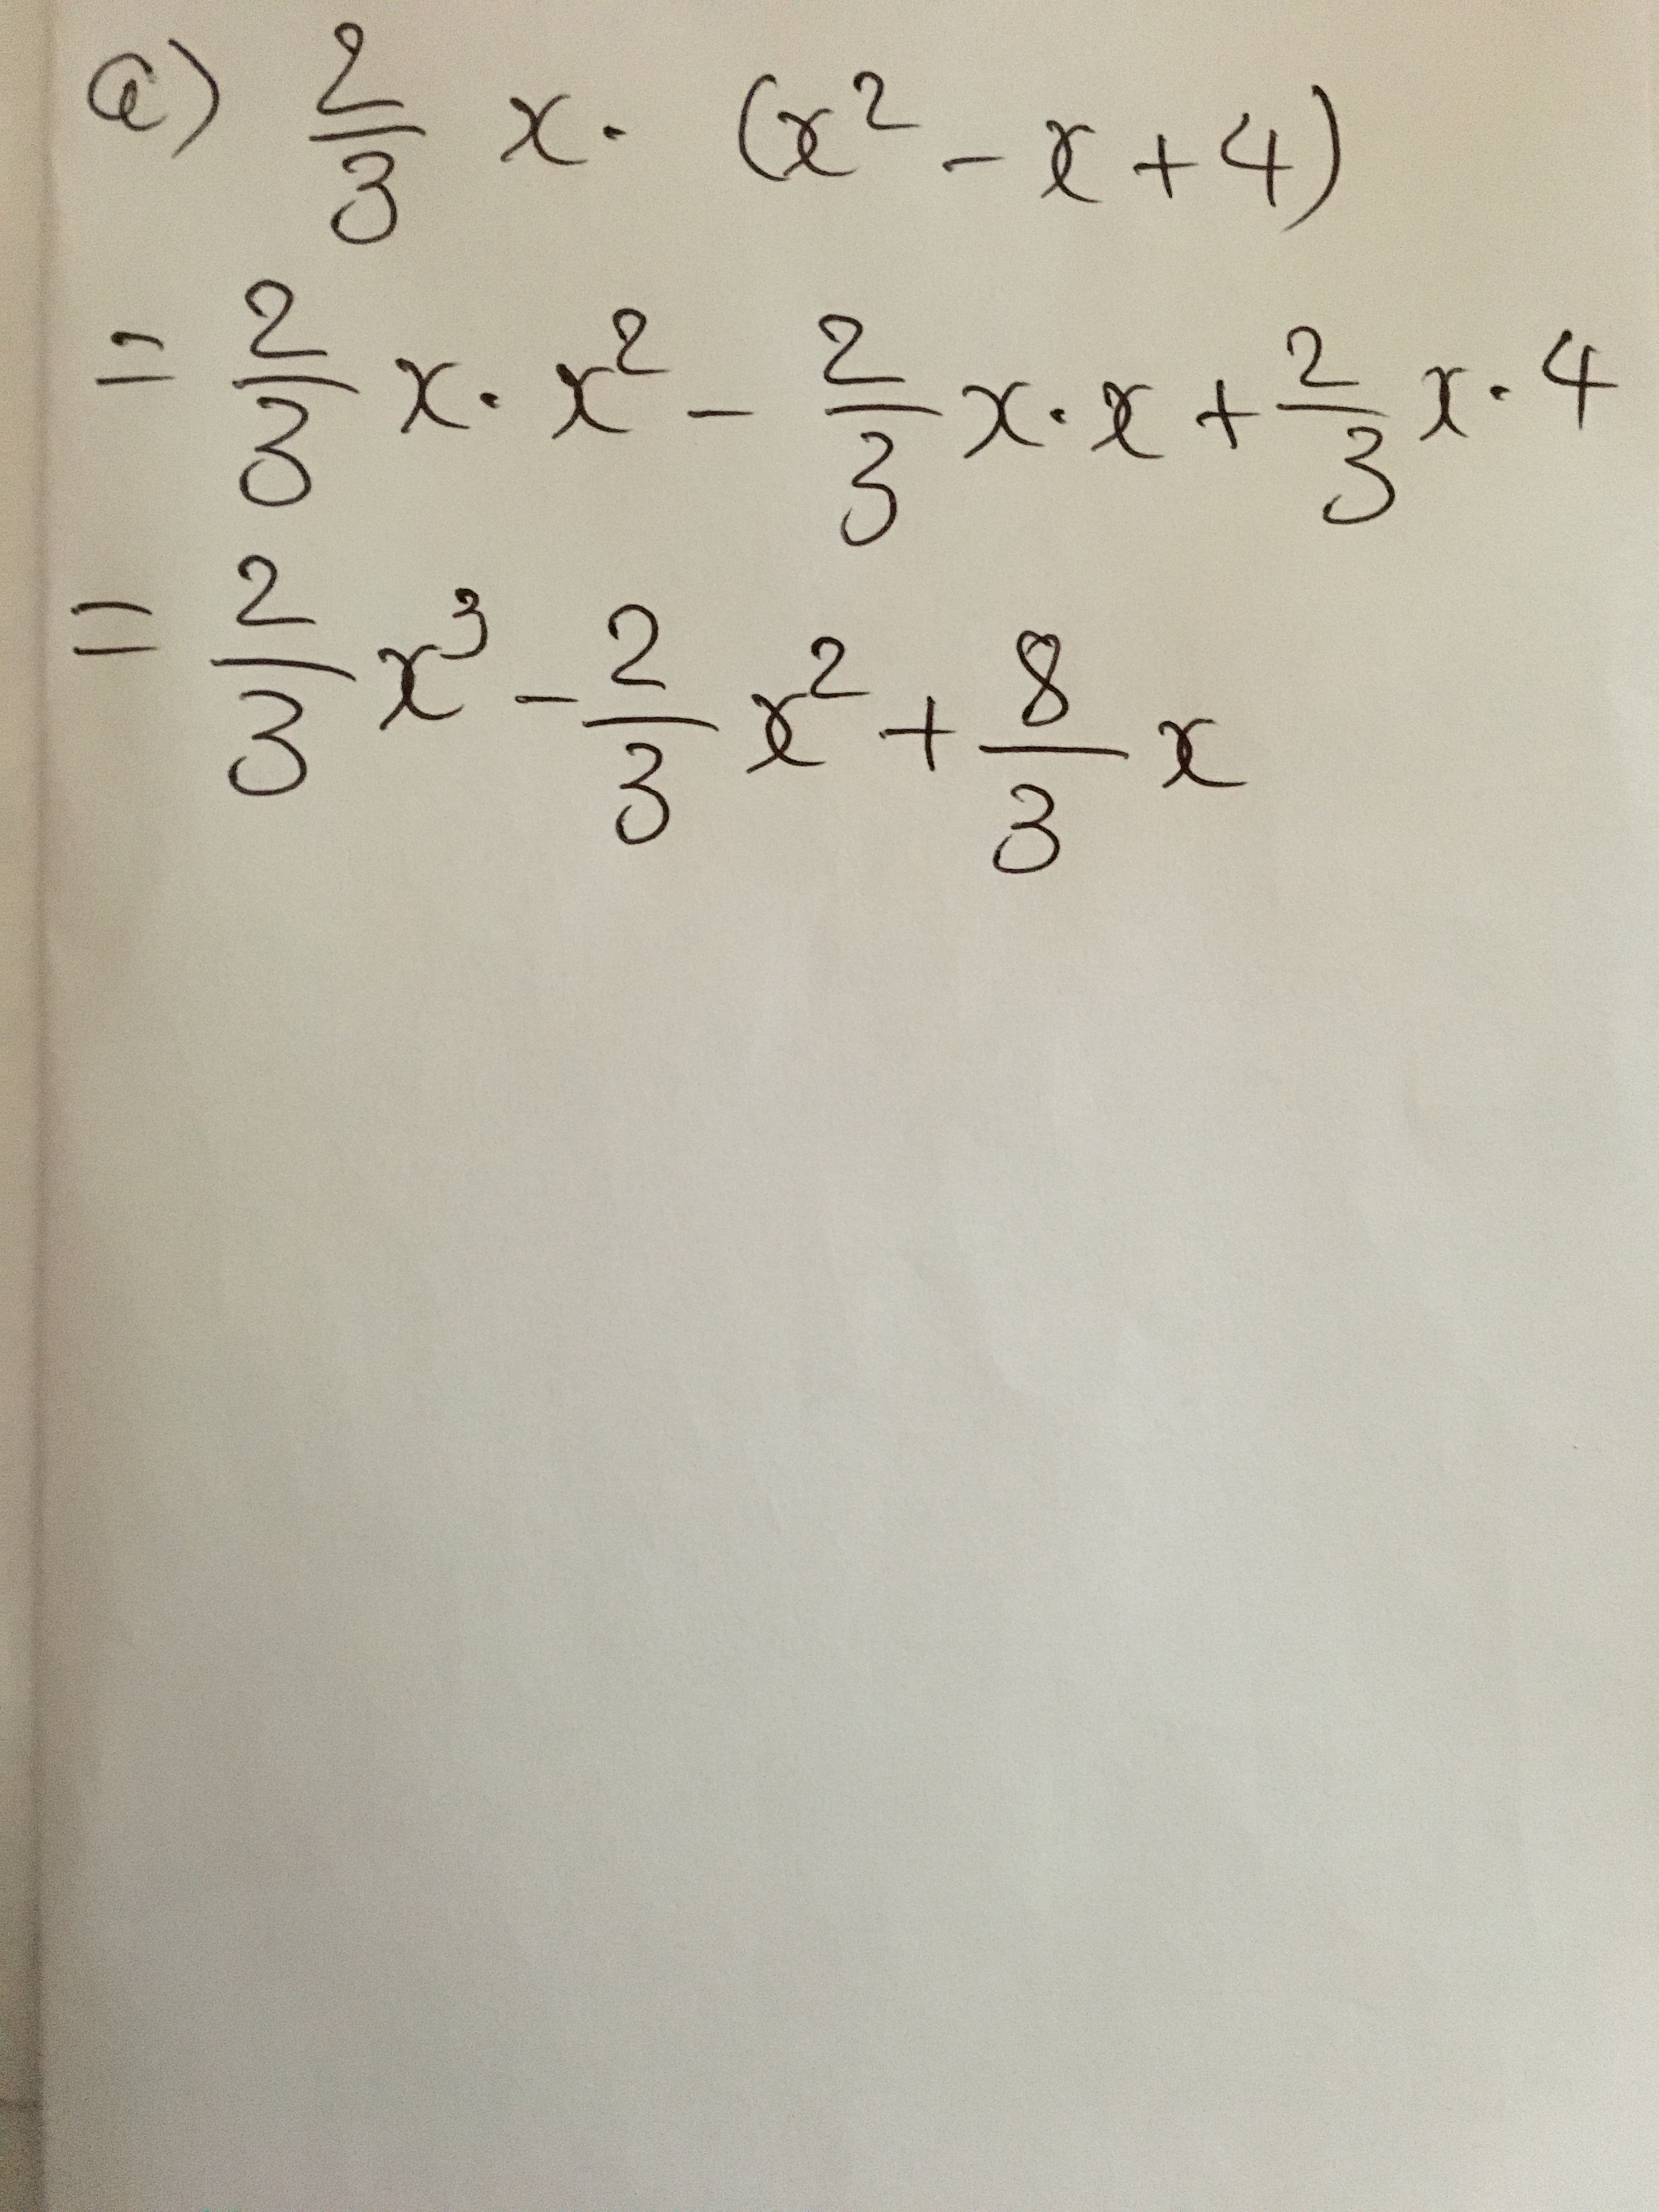 a) 2/3 x · (x² - x + 4)
= 2/3 x · x² - 2/3 x · x + 2/3 x · 4
= 2/3 x³ - 2/3 x² + 8/3 x